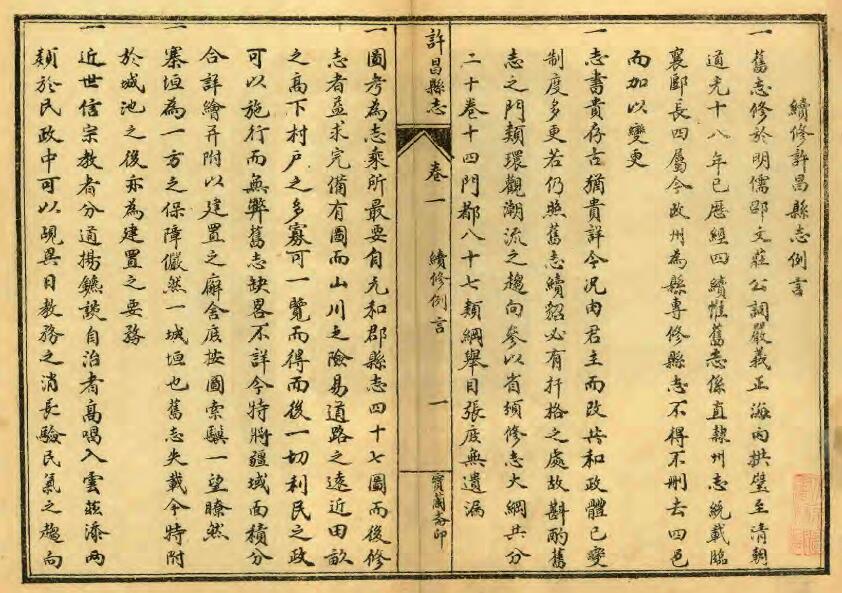 續修許昌縣志例言
一舊志修於明儒邵文莊公詞嚴義正海內拱璧至清朝
道光十八年已歷經四續惟舊志係直隸州志統載臨
襄郾長四屬今改州為縣專修縣志不得不刪去四邑
而加以變更
一志書貴存古猶貴詳今況由君主而改共和政體已變
制度多更若仍照舊志續貂必有扞格之處故斟酌舊
志之門類環觀潮流之趨向參以省頒修志大綱共分
二十卷十四門都八十七類綱舉目張庶無遺漏
許昌縣志
卷一
續修例言
一
寶蘭齋印
一圖考為志乘所最要自元和郡縣志四十七圖而後修
志者益求完備有圖而山川之險易道路之遠近田畝
之高下村戶之多寡可一覽而得而後一切利民之政
可以施行而無弊舊志缺畧不詳今特將疆域面積分
合詳繪并附以建置之廨舍庶按圖索驥一望瞭然
一寨垣為一方之保障儼然一城垣也舊志失載今特附
於城池之後亦為建置之要務
一近世信宗教者分道揚鑣談自治者高唱入雲茲添兩
類於民政中可以覘異日教務之消長驗民氣之趨向